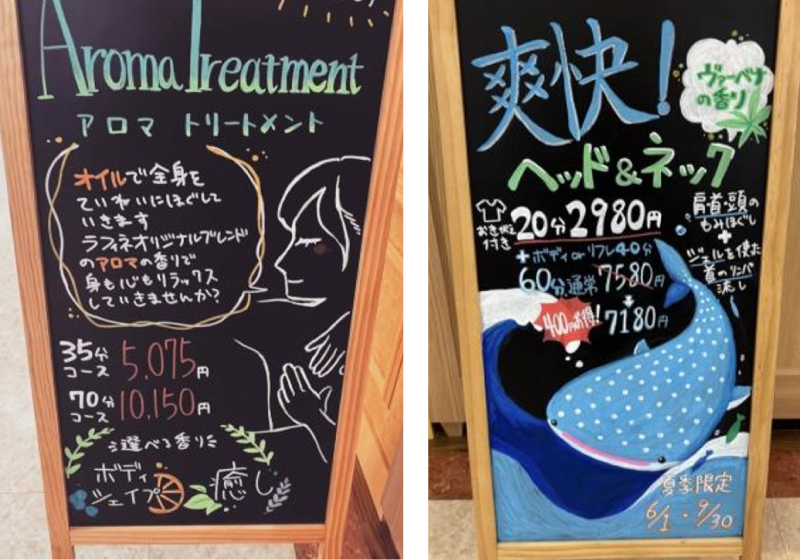 Aroma Treatment
アロマ トリートメント
オイルで全身を
ていねいにほぐして
いきます
ラフィネオリジナルブレンド
のアロマの香りで
身も心もリラックス
していきませんか?
35分
コース 5,075円
70分
コース 10,150円
選べる香り
ボディ
シェイプ
癒し
爽快!
ヴァーベナ
の香り
ヘッド&ネック
おきがえ
付き
20分 2980円
+ボディorリフレ40分
60分通常 7580円
400円お得! 7180円
肩・首・頭の
もみほぐし
+
ジェルを使った
首のリンパ
流し
夏季限定
6/1・9/30